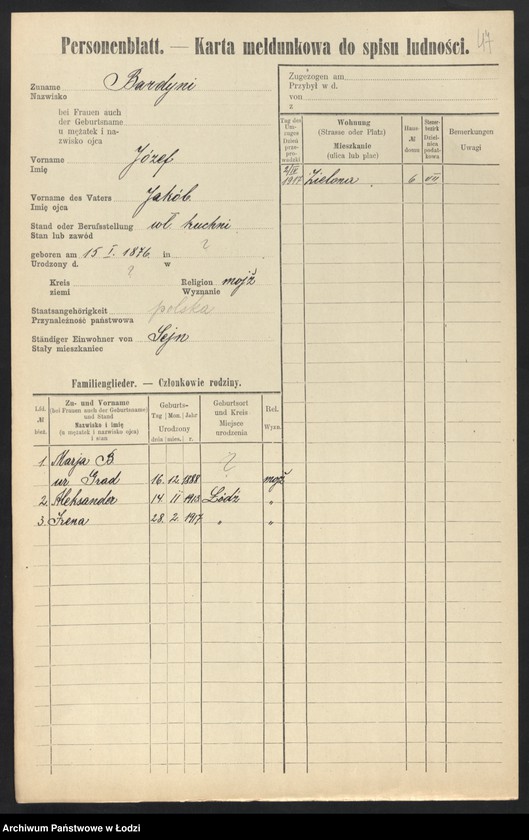 47
Personenblatt. — Karta meldunkowa do spisu ludności.
Zuname
Nazwisko
Bardyni
bei Frauen auch
der Geburtsname
u mężatek i na-
zwisko ojca
Vorname
Imię
Józef
Vorname des Vaters
Imię ojca
Jakób
Stand oder Berufsstellung
Stan lub zawód
wł. kuchni
geboren am 15 I. 1876. in ?
Urodzony d. w
Kreis ?
ziemi
Religion mojż
Wyznanie
Staatsangehörigkeit
Przynależność państwowa
polska
Ständiger Einwohner von
Stały mieszkaniec
Sejn
Zugezogen am
Przybył w d.
von
z
Tag des Um-zuges
Dzień prze-pro-wadzki
Wohnung
(Strasse oder Platz)
Mieszkanie
(ulica lub plac)
Haus №
domu
Steuer-bezirk
Dziel-nica podat-kowa
Bemerkungen
Uwagi
2/IX 1917 Zielona 6 VII
Familienglieder. — Członkowie rodziny.
Lfd. № bież.
Zu- und Vorname
(bei Frauen auch der Geburtsname)
und Stand
Nazwisko i imię
(u mężatek i nazwisko ojca)
i stan
Geburts-
Tag Mon. Jahr
Urodzony
dnia mies. r.
Geburtsort
und Kreis
Miejsce
urodzenia
Rel.
Wyzn.
1. Marja B ?
ur. Grad 16. 12. 1888 mojż
2. Aleksander 14. II 1913 Łódź "
3. Irena 28. 2. 1917 " "
Archiwum Państwowe w Łodzi